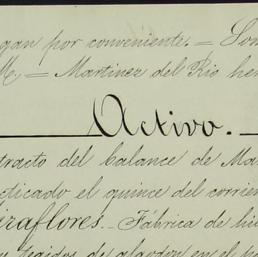 gan por conveniente. = Son
M. = Martinez del Rio her
Activo.
tracto del balance de Ma
cticado el quince del corrien
raflores. - Fábrica de hi
tejidos de algodon en el